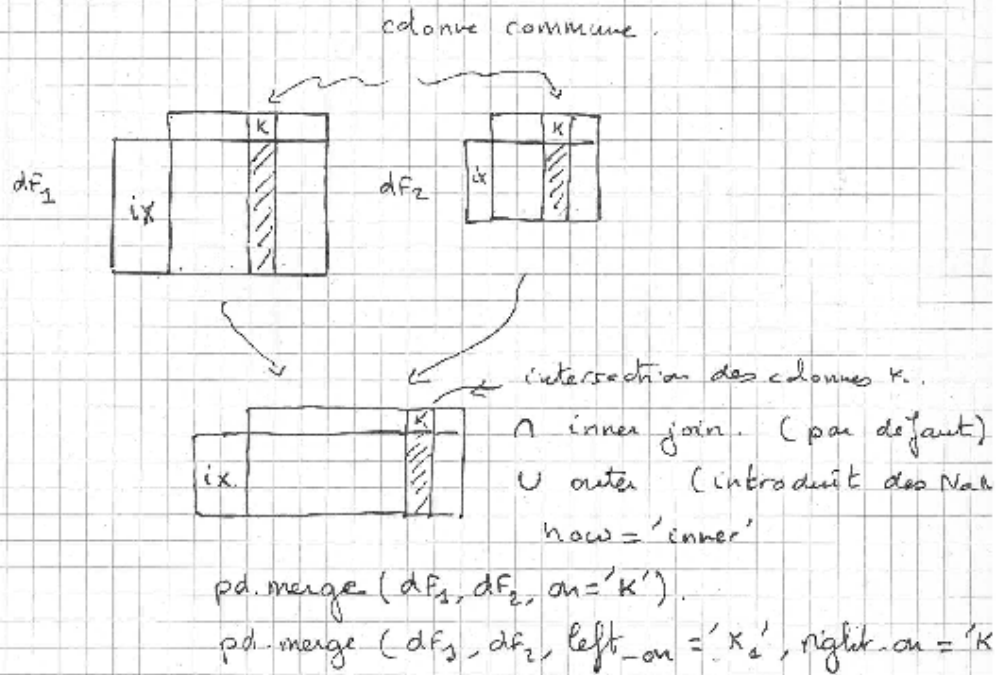 colonne commune.
K K
dF1 ix dF2 ix
intersection des colonnes K.
K
∩ inner join. (par défaut)
ix
∪ outer (introduit des Nan
how='inner'
pd.merge(dF1, dF2, on='K').
pd.merge(dF1, dF2, left_on='K1', right_on='K